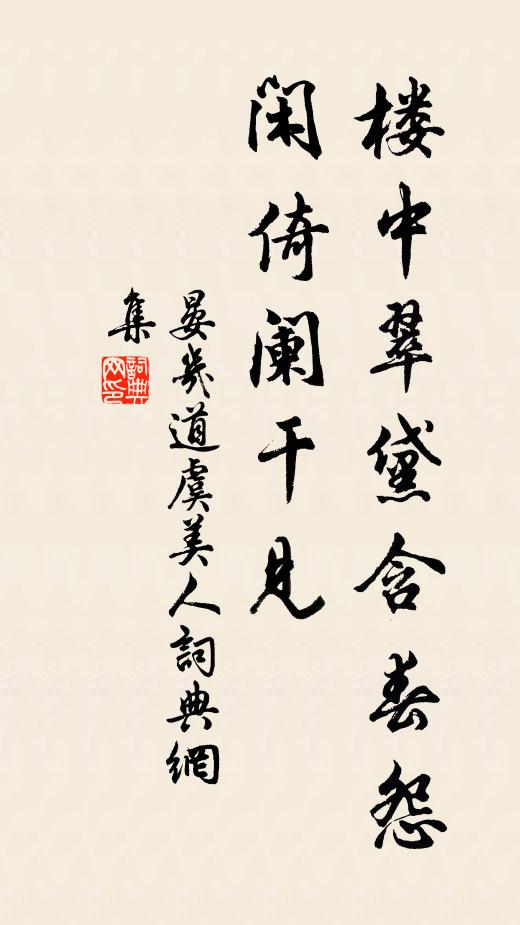 楼中翠黛含春怨
闲倚阑干见
晏幾道虞美人詞典網
集
詞典網印